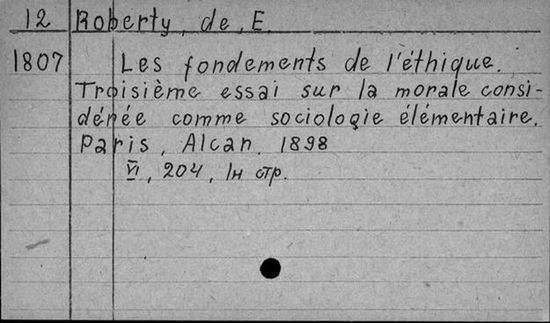 12 Roberty, de, E.
1807 Les fondements de l'éthique.
Troisième essai sur la morale consi-
dérée comme sociologie élémentaire.
Paris, Alcan. 1898
VI, 204, Iн стр.